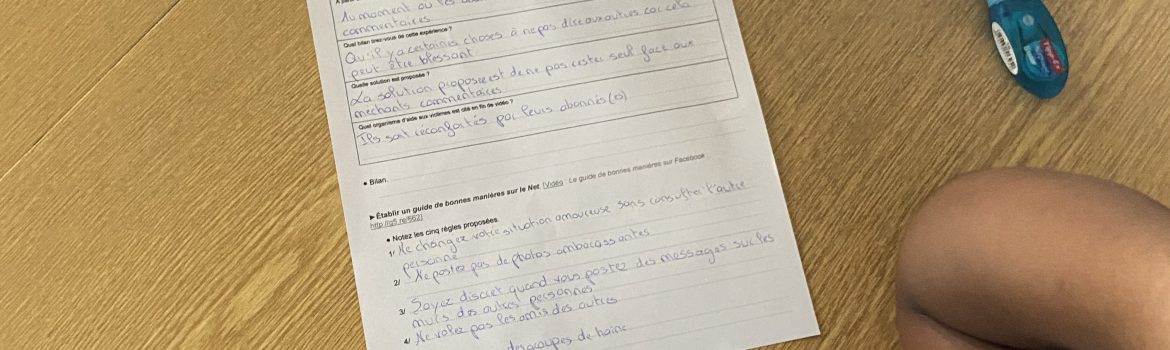 Au moment ou les
commentaires
Quel bilan tirez-vous de cette expérience ?
Qu'il y a certaines choses à ne pas dire aux autres car cela
peut être blessant
Quelle solution est proposée ?
La solution proposée est de ne pas rester seul face aux
méchants commentaires
Quel organisme d'aide aux victimes est cité en fin de vidéo ?
Ils sont réconfortés par leurs abonnés (o)
● Bilan.
► Établir un guide de bonnes manières sur le Net. [Vidéo : Le guide de bonnes manières sur Facebook
● Notez les cinq règles proposées.
1/ Ne changez votre situation amoureuse sans consulter l'autre
personne
2/ Ne postez pas de photos embarassantes
3/ Soyez discret quand vous postez des messages sur les
murs des autres personnes
4/ Ne volez pas les amis des autres
groupes de haine